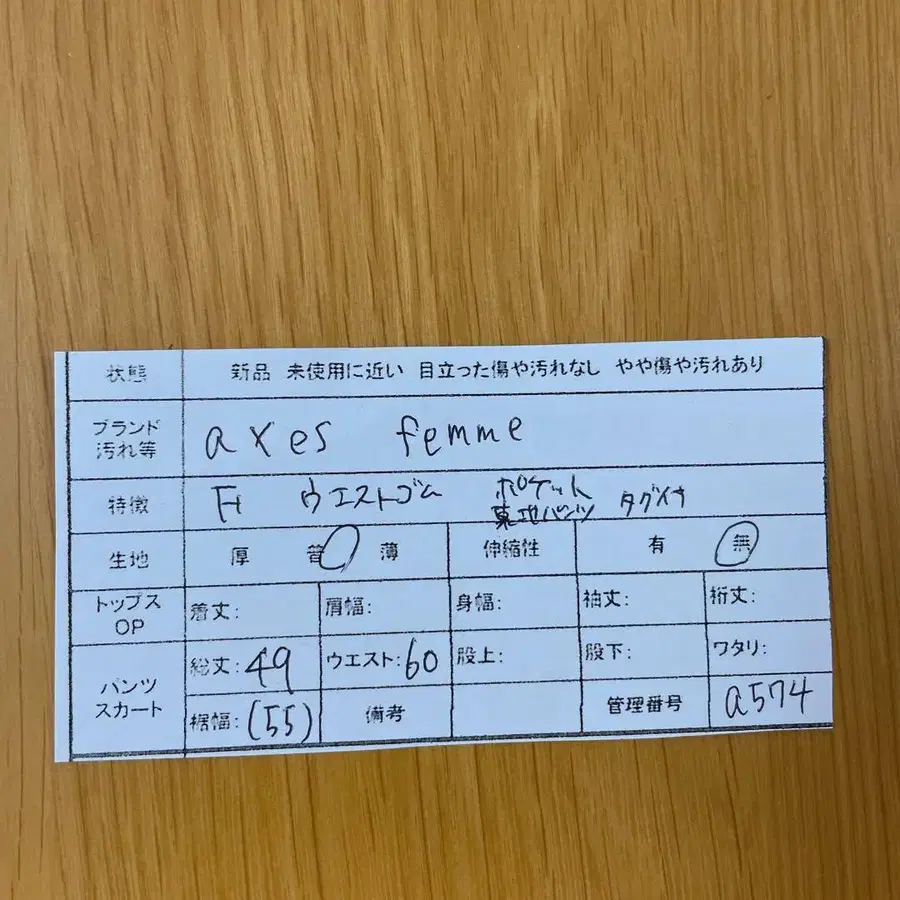 状態 新品 未使用に近い 目立った傷や汚れなし やや傷や汚れあり
ブランド 汚れ等 axes femme
特徴 F ウエストゴム ポケット タグ付
裏地パンツ
生地 厚 普 薄 伸縮性 有 無
トップス OP 着丈: 肩幅: 身幅: 袖丈: 裄丈:
パンツ スカート 総丈:49 ウエスト:60 股上: 股下: ワタリ:
裾幅:(55) 備考 管理番号 a574